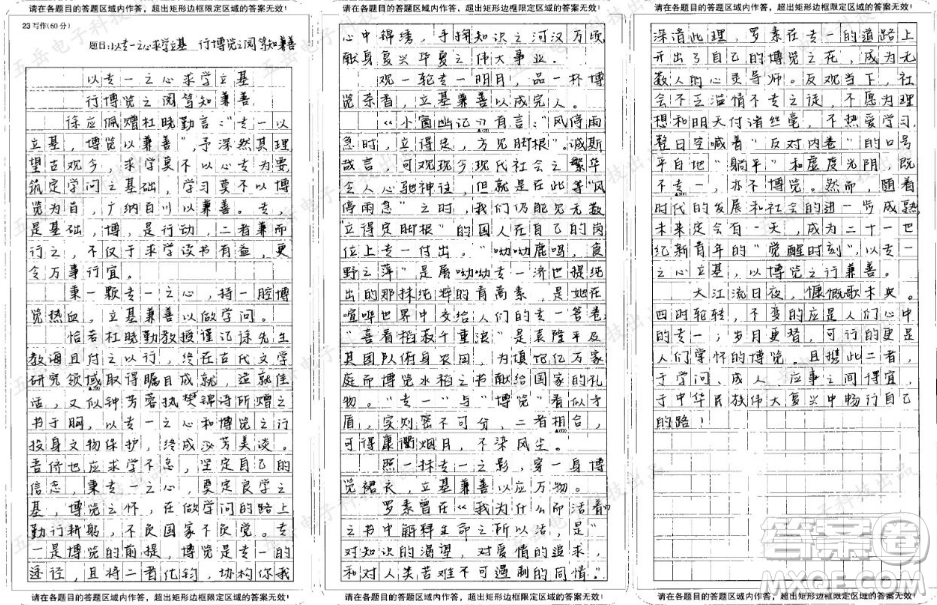 请在各题目的答题区域内作答，超出矩形边框限定区域的答案无效！
23 写作(60分)
题目：以专一之心求学立基 行博览之阅笃知兼善
以专一之心求学立基
行博览之阅笃知兼善
徐应佩赠杜晓勤言："专一以
立基，博览以兼善"，予深然其理
望古观今，求学莫不以心专为要
筑定学问之基础，学习要不以博
览为自，广纳百川以兼善。专，
是基础，博，是行动，二者兼而
行之，不仅于求学读书有益，更
令万事行宜。
秉一颗专一之心，持一腔博
览热血，立基兼善以做学问。
恰若杜晓勤教授谨记徐先生
教诲且付之以行，终在古代文学
研究领域取得瞩目成就，这就佳
话，又似钟芳蓉执樊锦诗所赠之
书于胸，以专一之心和博览之行
投身文物保护，终成芬芳美谈。
吾侪也应求学不怠，坚定自己的
信志，秉专一之心，奠定良学之
基，博览之怀，在做学问的路上
勤行耕躬，不负国家不负党。专
一是博览的前提，博览是专一的
途径，且将二者化钧，协构你我
请在各题目的答题区域内作答，超出矩形边框限定区域的答案无效！
请在各题目的答题区域内作答，超出矩形边框限定区域的答案无效！
心中锦绣，于拥知识之河汉万顷
献身复兴华夏之伟大事业。
观一轮专一明月，品一杯博
览茶香，立基兼善以成完人。
《小窗幽记》有言："风停雨
急时，立得定，方见脚根"。诚斯
故言，可观现今现代社会之繁华
令人心驰神往，但就是在此等"风
停雨急"之时，我们仍能见无数
立得定脚根"的国人在自己的岗
位上专一付出。"呦呦鹿鸣，食
野之苹"是屠呦呦专一济世提纯
出的那抹纯粹的青蒿素，是她在
喧哗世界中交给人们的专一答卷
"喜看稻菽千重浪"是袁隆平及
其团队俯身农田，为填亿亿万家
庭而博览水稻之书献给国家的礼
物。"专一"与"博览"看似矛
盾，实则密不可分，二者相合，
可得康衢烟月，不染风尘。
照一抹专一之影，穿一身博
览裙衣，立基兼善以应万物。
罗素曾在《我为什么而活着》
之书中解释生命之所以活，是"
对知识的渴望，对爱情的追求，
和对人类苦难不可遏制的同情"。
请在各题目的答题区域内作答，超出矩形边框限定区域的答案无效！
请在各题目的答题区域内作答，超出矩形边框限定区域的答案无效！
深谙此理，罗素在专一的道路上
开出了自己的博览之花，成为无
数人的心灵导师。反观当下，社
会不乏滥情不专之徒，不愿为理
想和明天付诸丝毫，不热爱学习，
整日空喊着"反对内卷"的口号
平白地"躺平"和虚度光阴，既
不专一，亦不博览。然而，随着
时代的发展和社会的进一步成熟
未来定会有一天，成为二十一世
纪新青年的"觉醒时刻"，以专一
之心立基，以博览之行兼善。
大江流日夜，慷慨歌未央。
四时轮转，不变的应是人们心中
的专一；岁月更替，可行的更是
人们掌怀的博览。且携此二者，
于学问、成人、应事之间得宜，
于中华民族伟大复兴中畅行自己
的路！
请在各题目的答题区域内作答，超出矩形边框限定区域的答案无效！
答案圈
MXQE.COM